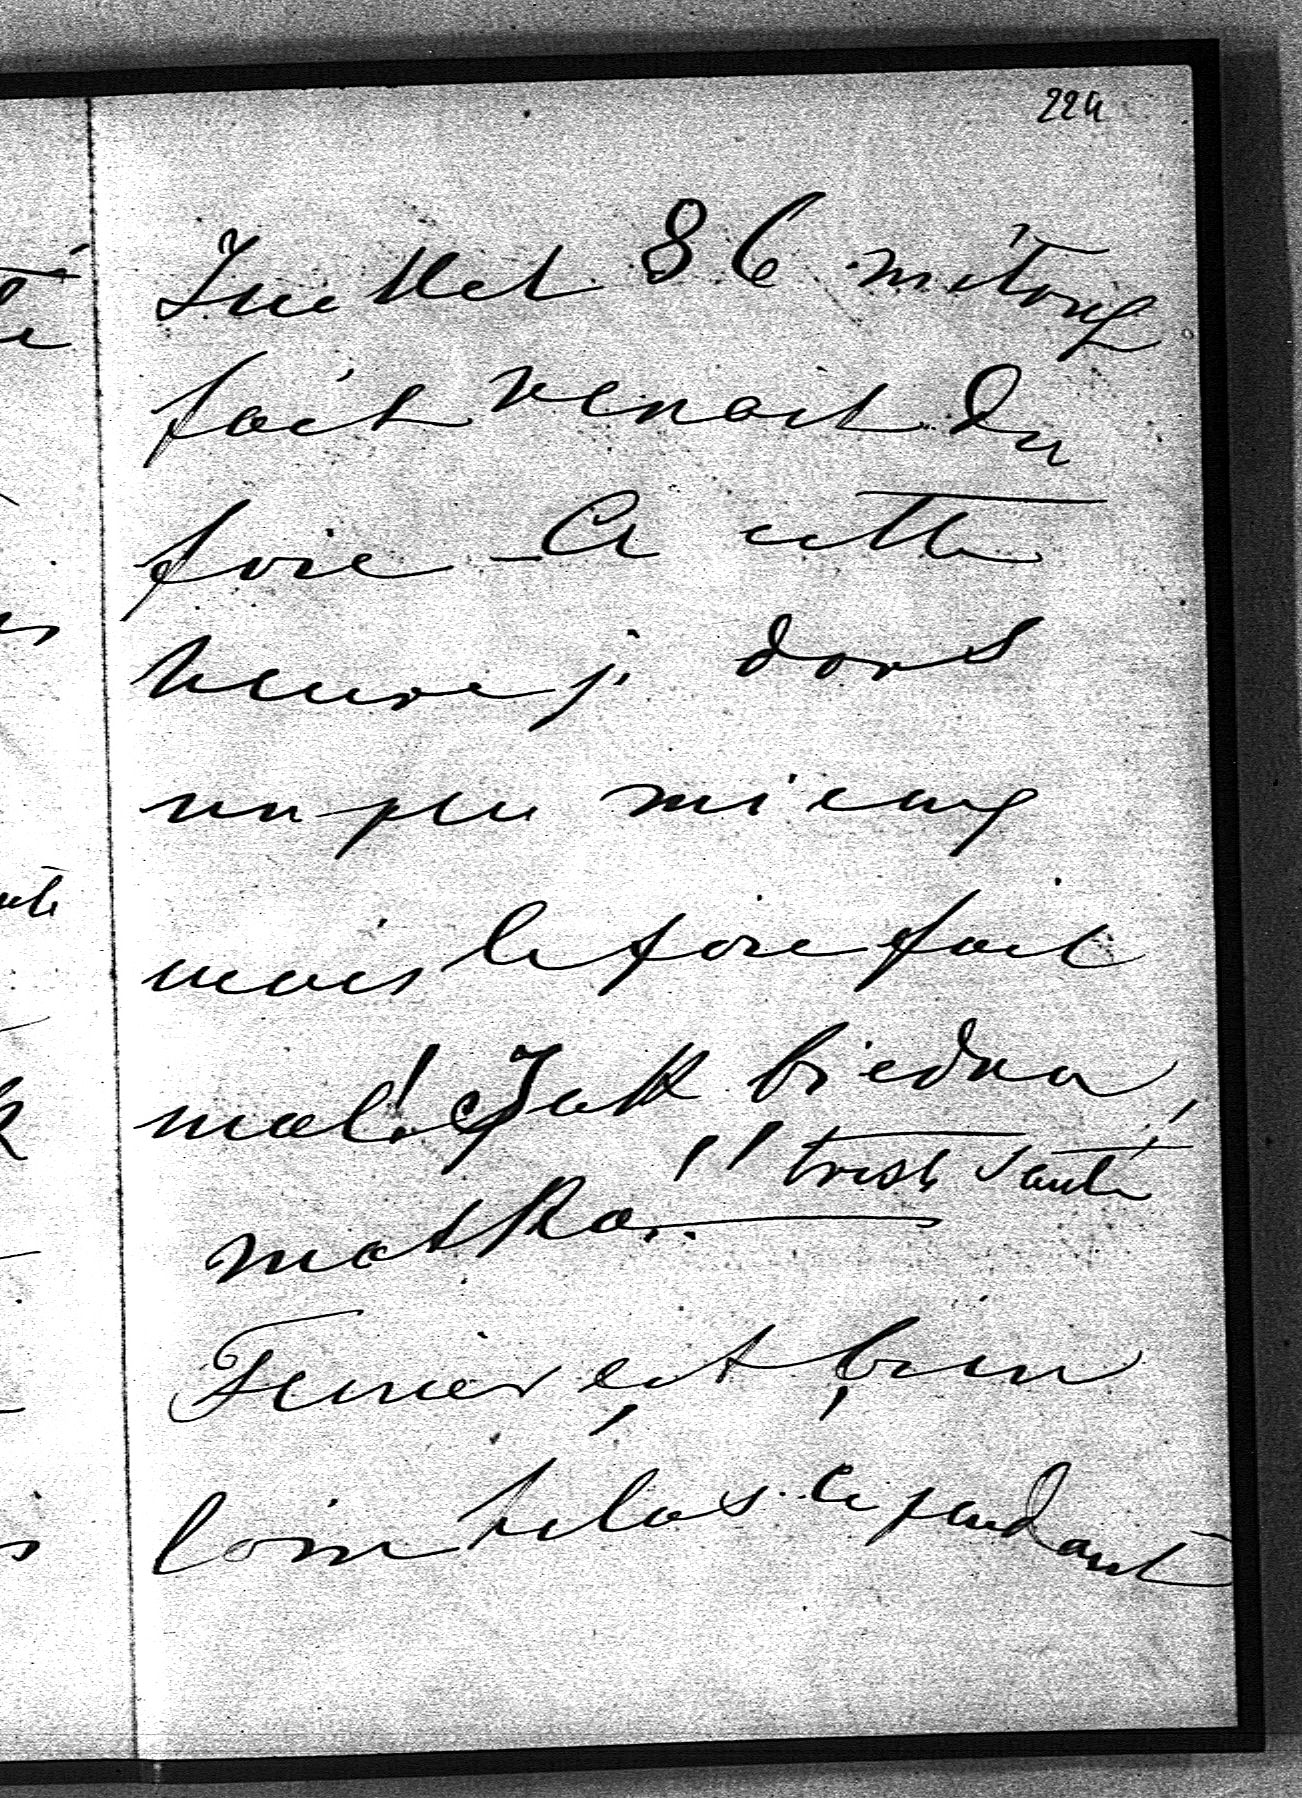 224
Juillet 86 m'étouf
fait venait du
foie - A cette
heure je dors
un peu mieux
mais le foie fait
mal! Jak biedna
matka!! triste santé
Fenier est bien
loin hélas cependant